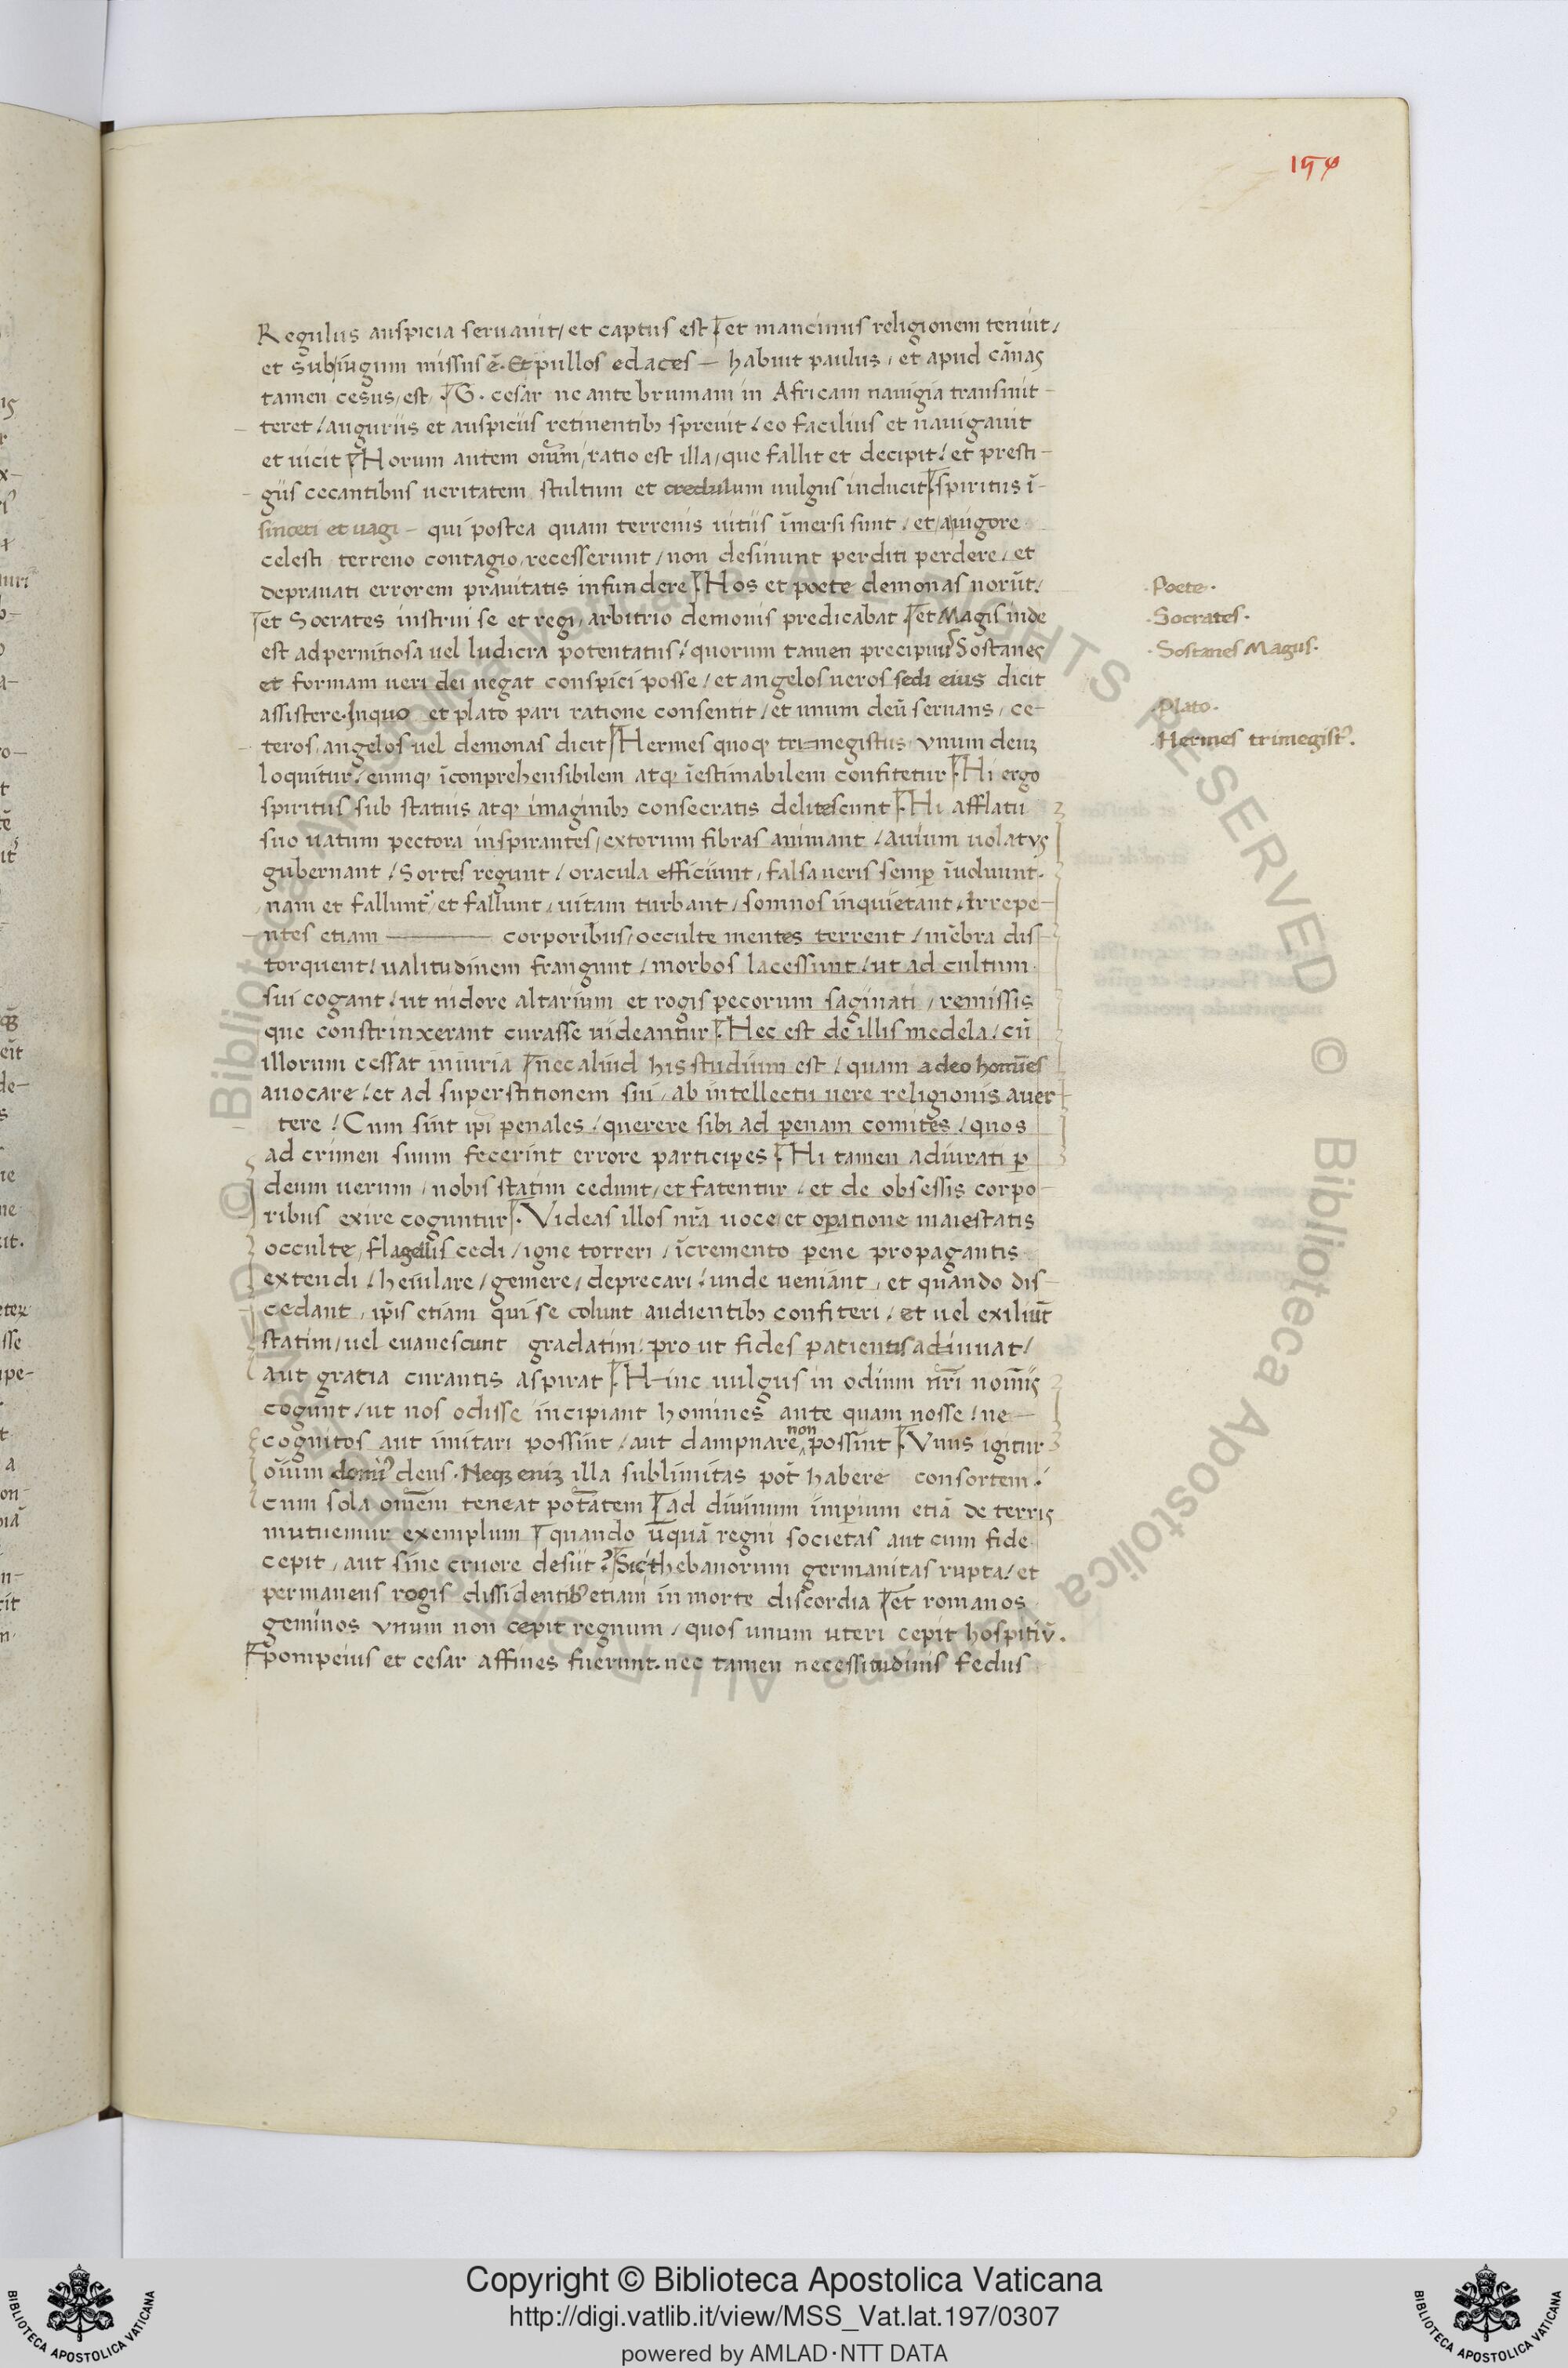 154
Regulus auspicia seruauit / et captus est et mancinus religionem tenuit /
et sub iugum missus ē. Et pullos edaces — habuit paulus / et apud cānas
tamen cesus est. G. cesar ne ante brumam in Africam nauigia transmit-
teret / auguriis et auspiciis retinentibꝫ spreuit / eo facilius et nauigauit
et uicit Horum autem oīum ratio est illa / que fallit et decipit / et presti-
giis cecantibus ueritatem stultum et credulum uulgus inducit. spiritus ī-
sinceri et uagi - qui postea quam terrenis uitiis īmersi sunt / et a uigore
celesti terreno contagio recesserunt / non desinunt perditi perdere / et
deprauati errorem prauitatis infundere. Hos et poete demonas norūt /
et Socrates instrui se et regi / arbitrio demonis predicabat et Magis inde
est ad pernitiosa uel ludicra potentatus / quorum tamen precipuus Sostanes
et formam ueri dei negat conspici posse / et angelos ueros sedi eius dicit
assistere. In quo et plato pari ratione consentit / et unum deū seruans / ce-
teros angelos uel demonas dicit Hermes quoqꝫ tri=megistus vnum deuꝫ
loquitur / eumqꝫ īconprehensibilem atqꝫ īestimabilem confitetur. Hi ergo
spiritus sub statuis atqꝫ imaginibꝫ consecratis delitescunt. Hi afflatu
suo uatum pectora inspirantes / extorum fibras animant / auium uolatus
gubernant / Sortes regunt / oracula efficiunt / falsa ueris semꝑ īuoluunt.
nam et falluntᷣ et fallunt / uitam turbant / somnos inquietant / Irrepe-
ntes etiam — corporibus / occulte mentes terrent / mēbra dis-
torquent / ualitudinem frangunt / morbos lacessunt / ut ad cultum
sui cogant / ut nidore altarium et rogis pecorum saginati / remissis
que constrinxerant curasse uideantur. Hec est de illis medela / cū
illorum cessat iniuria nec aliud his studium est / quam a deo homīes
auocare / et ad superstitionem sui / ab intellectu uere religionis auer-
tere / Cum sint ip̄i penales / querere sibi ad penam comites / quos
ad crimen suum fecerint errore participes. Hi tamen adiurati ꝑ
deum uerum / nobis statim cedunt / et fatentur / et de obsessis corpo-
ribus exire coguntur. Videas illos nr̄a uoce et oꝑatione maiestatis
occulte flagellis cedi / igne torreri / īcremento pene propagantis
extendi / heiulare / gemere / deprecari / unde ueniant / et quando dis-
cedant / ip̄is etiam qui se colunt audientibꝫ confiteri / et uel exiliūt
statim / uel euanescunt gradatim / pro ut fides patientis adiuuat /
aut gratia curantis aspirat. Hinc uulgus in odium nr̄i nom̄is
cogunt / ut nos odisse incipiant homines ante quam nosse / ne —
cognitos aut imitari possint / aut dampnare non possint. Vnus igitur
oīum domiꝰ deus. Neqꝫ eniꝫ illa sublimitas pot̄ habere consortem /
cum sola om̄em teneat pot̄atem ad diuinum imꝑium etiā de terris
mutuemur exemplum quando ūquā regni societas aut cum fide
cepit / aut sine cruore desiit? Sic thebanorum germanitas rupta / et
permanens rogis dissidentibꝰ etiam in morte discordia et romanos
geminos vnum non cepit regnum / quos unum uteri cepit hospitiū.
pompeius et cesar affines fuerunt. nec tamen necessitudinis fedus
.Poete.
.Socrates.
.Sostanes Magus.
.Plato.
.Hermes trimegistꝰ.
2
© Biblioteca Apostolica Vaticana ALL RIGHTS RESERVED
Copyright © Biblioteca Apostolica Vaticana
http://digi.vatlib.it/view/MSS_Vat.lat.197/0307
powered by AMLAD·NTT DATA
BIBLIOTECA APOSTOLICA VATICANA
BIBLIOTECA APOSTOLICA VATICANA